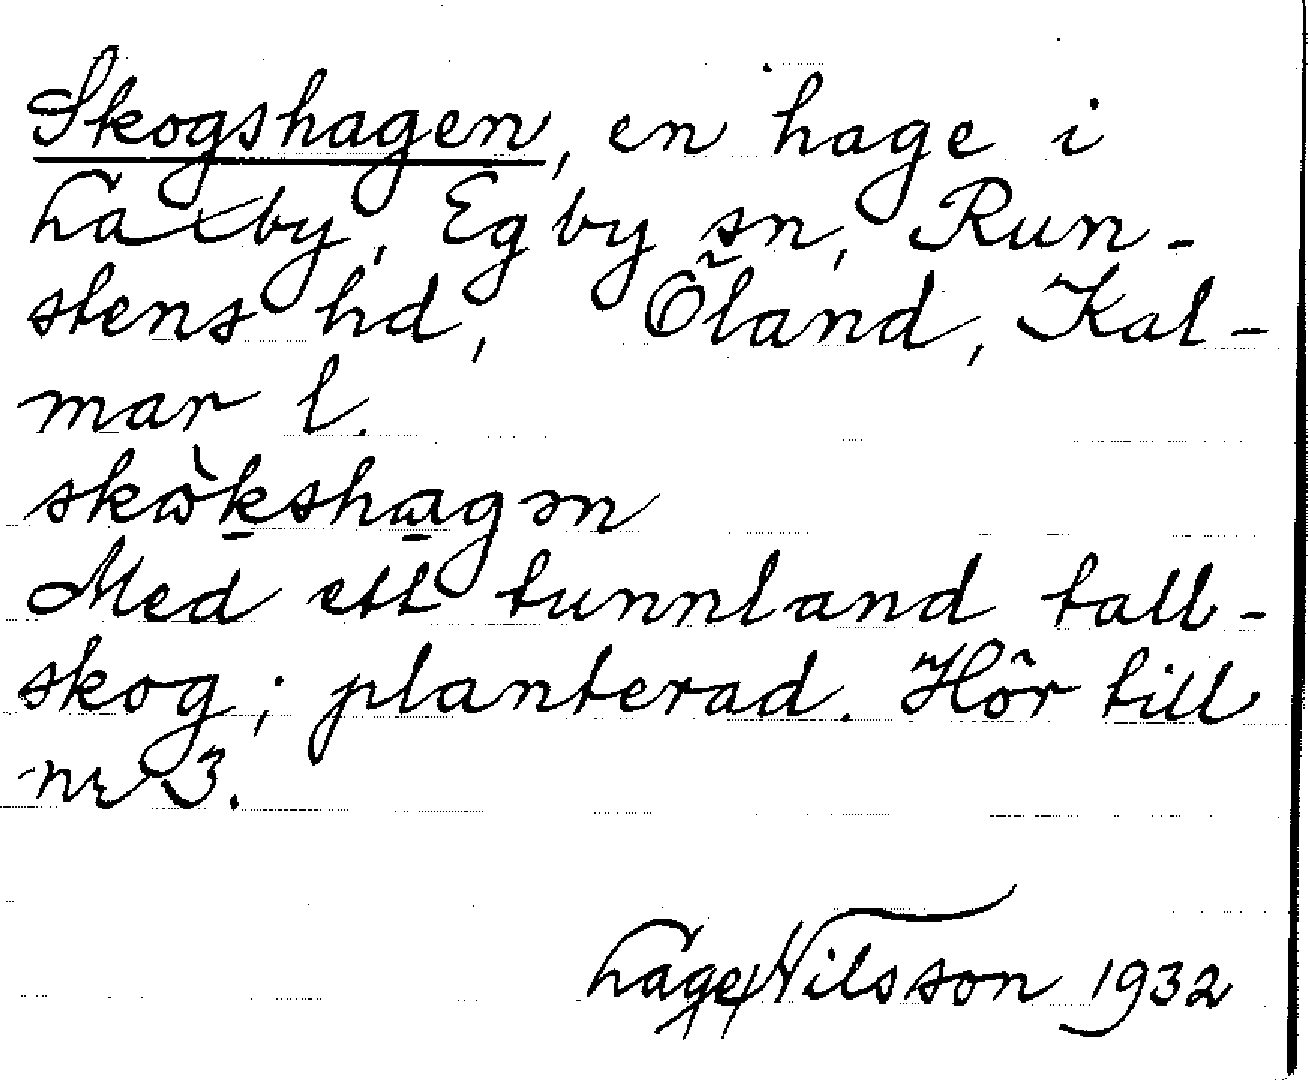 Skogshagen, en hage i
Laxby, Egby sn, Run-
stens hd, Öland, Kal-
mar l.
skὼk̠sha̠gən
Med ett tunnland tall-
skog; planterad. Hör till
nr 3.
Lage Nilsson 1932